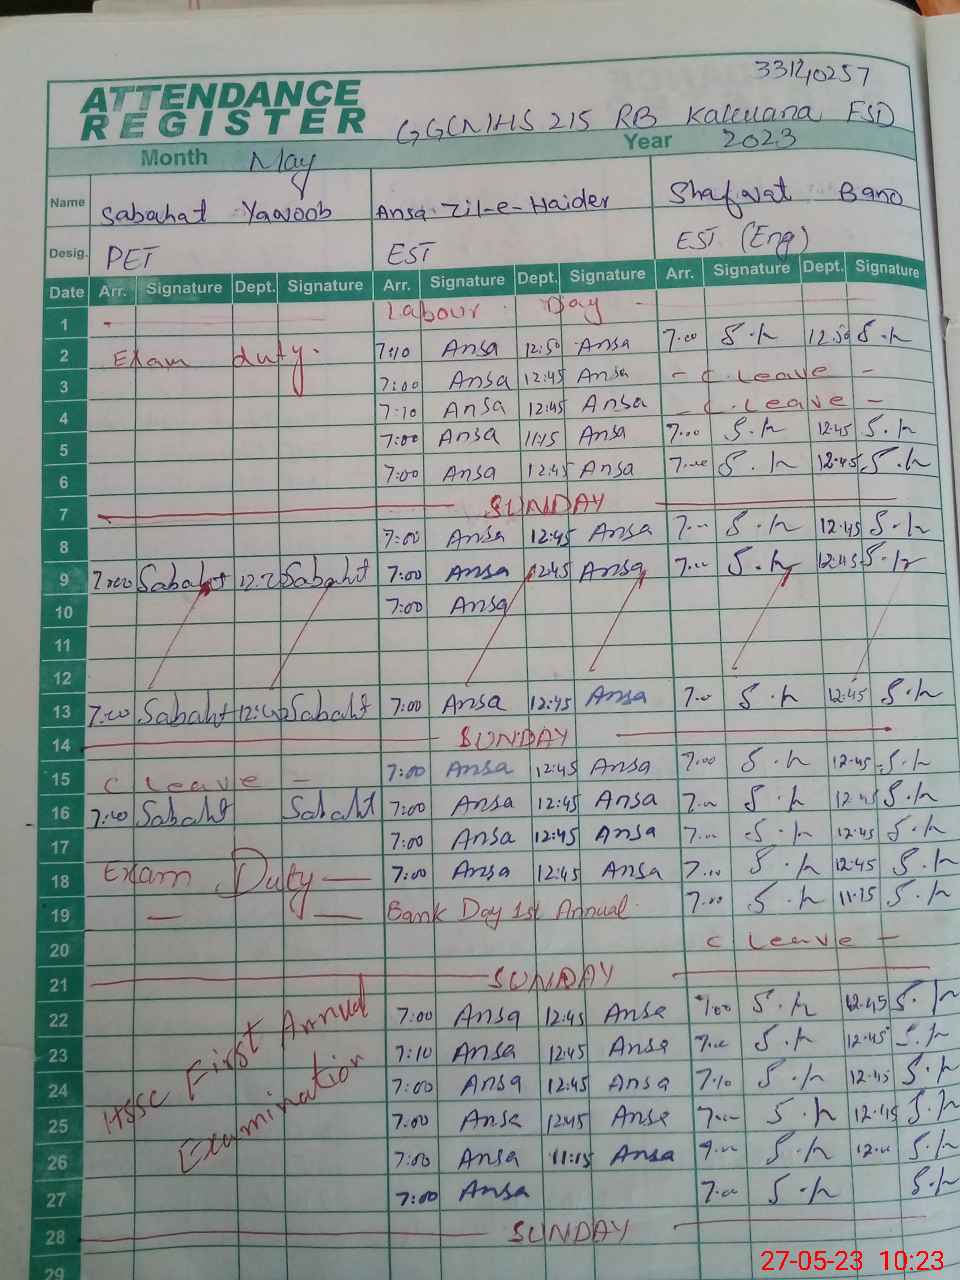 33140257
ATTENDANCE
REGISTER
215 RB FSD
Month May Year 2023
Name Sabahat Yaqoob Ansa Zil-e-Haider Shafqat Bano
Desig. PET EST EST (Eng)
Date Arr. Signature Dept. Signature Arr. Signature Dept. Signature Arr. Signature Dept. Signature
1 Labour Day
2 Exam duty. 7:10 Ansa 12:50 Ansa 7:00 S.h 12:50 S.h
3 7:00 Ansa 12:45 Ansa - C leave -
4 7:10 Ansa 12:45 Ansa - C. leave -
5 7:00 Ansa 11:15 Ansa 7:00 S.h 12:45 S.h
6 7:00 Ansa 12:45 Ansa 7:00 S.h 12:45 S.h
7 SUNDAY
8 7:00 Ansa 12:45 Ansa 7:00 S.h 12:45 S.h
9 7:00 Sabaht Sabaht 7:00 Ansa 12:45 Ansa 7:00 S.h 12:45 S.h
10 7:00 Ansa
11
12
13 7:00 Sabaht Sabaht 7:00 Ansa 12:45 Ansa 7:00 S.h 12:45 S.h
14 SUNDAY
15 C Leave - 7:00 Ansa 12:45 Ansa 7:00 S.h 12:45 S.h
16 7:00 Sabaht Sabaht 7:00 Ansa 12:45 Ansa 7:00 S.h 12:45 S.h
17 7:00 Ansa 12:45 Ansa 7:00 S.h 12:45 S.h
18 Exam Duty 7:00 Ansa 12:45 Ansa 7:00 S.h 12:45 S.h
19 Bank Day 1st Annual. 7:00 S.h 11:15 S.h
20 C leave -
21 SUNDAY
22 7:00 Ansa 12:45 Ansa 7:00 S.h 12:45 S.h
23 7:10 Ansa 12:45 Ansa 7:00 S.h 12:45 S.h
24 7:00 Ansa 12:45 Ansa 7:10 S.h 12:45 S.h
25 7:00 Ansa 12:45 Ansa 7:00 S.h 12:45 S.h
26 7:00 Ansa 11:15 Ansa 7:00 S.h 12:00 S.h
27 7:00 Ansa 7:00 S.h S.h
HSSC First Annual
Examination
28 SUNDAY
29
27-05-23 10:23